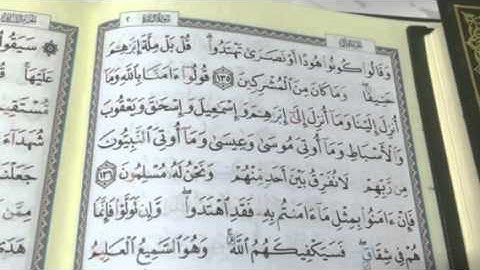 سُورَةُ البَقَرَةِ ٢
وَقَالُوا۟ كُونُوا۟ هُودًا أَوْ نَصَـٰرَىٰ تَهْتَدُوا۟ ۗ قُلْ بَلْ مِلَّةَ إِبْرَٰهِـۧمَ
حَنِيفًا ۖ وَمَا كَانَ مِنَ ٱلْمُشْرِكِينَ ١٣٥ قُولُوٓا۟ ءَامَنَّا بِٱللَّهِ وَمَآ
أُنزِلَ إِلَيْنَا وَمَآ أُنزِلَ إِلَىٰٓ إِبْرَٰهِـۧمَ وَإِسْمَـٰعِيلَ وَإِسْحَـٰقَ وَيَعْقُوبَ
وَٱلْأَسْبَاطِ وَمَآ أُوتِىَ مُوسَىٰ وَعِيسَىٰ وَمَآ أُوتِىَ ٱلنَّبِيُّونَ
مِن رَّبِّهِمْ لَا نُفَرِّقُ بَيْنَ أَحَدٍ مِّنْهُمْ وَنَحْنُ لَهُۥ مُسْلِمُونَ ١٣٦
فَإِنْ ءَامَنُوا۟ بِمِثْلِ مَآ ءَامَنتُم بِهِۦ فَقَدِ ٱهْتَدَوا۟ ۖ وَّإِن تَوَلَّوْا۟ فَإِنَّمَا
هُمْ فِى شِقَاقٍ ۖ فَسَيَكْفِيكَهُمُ ٱللَّهُ ۚ وَهُوَ ٱلسَّمِيعُ ٱلْعَلِيمُ
۞ سَيَقُو
عَلَيْهَا
مُّسْتَقِيمٍ
شُهَدَآءَ
جَعَلْنَا
مِمَّن
هَدَى